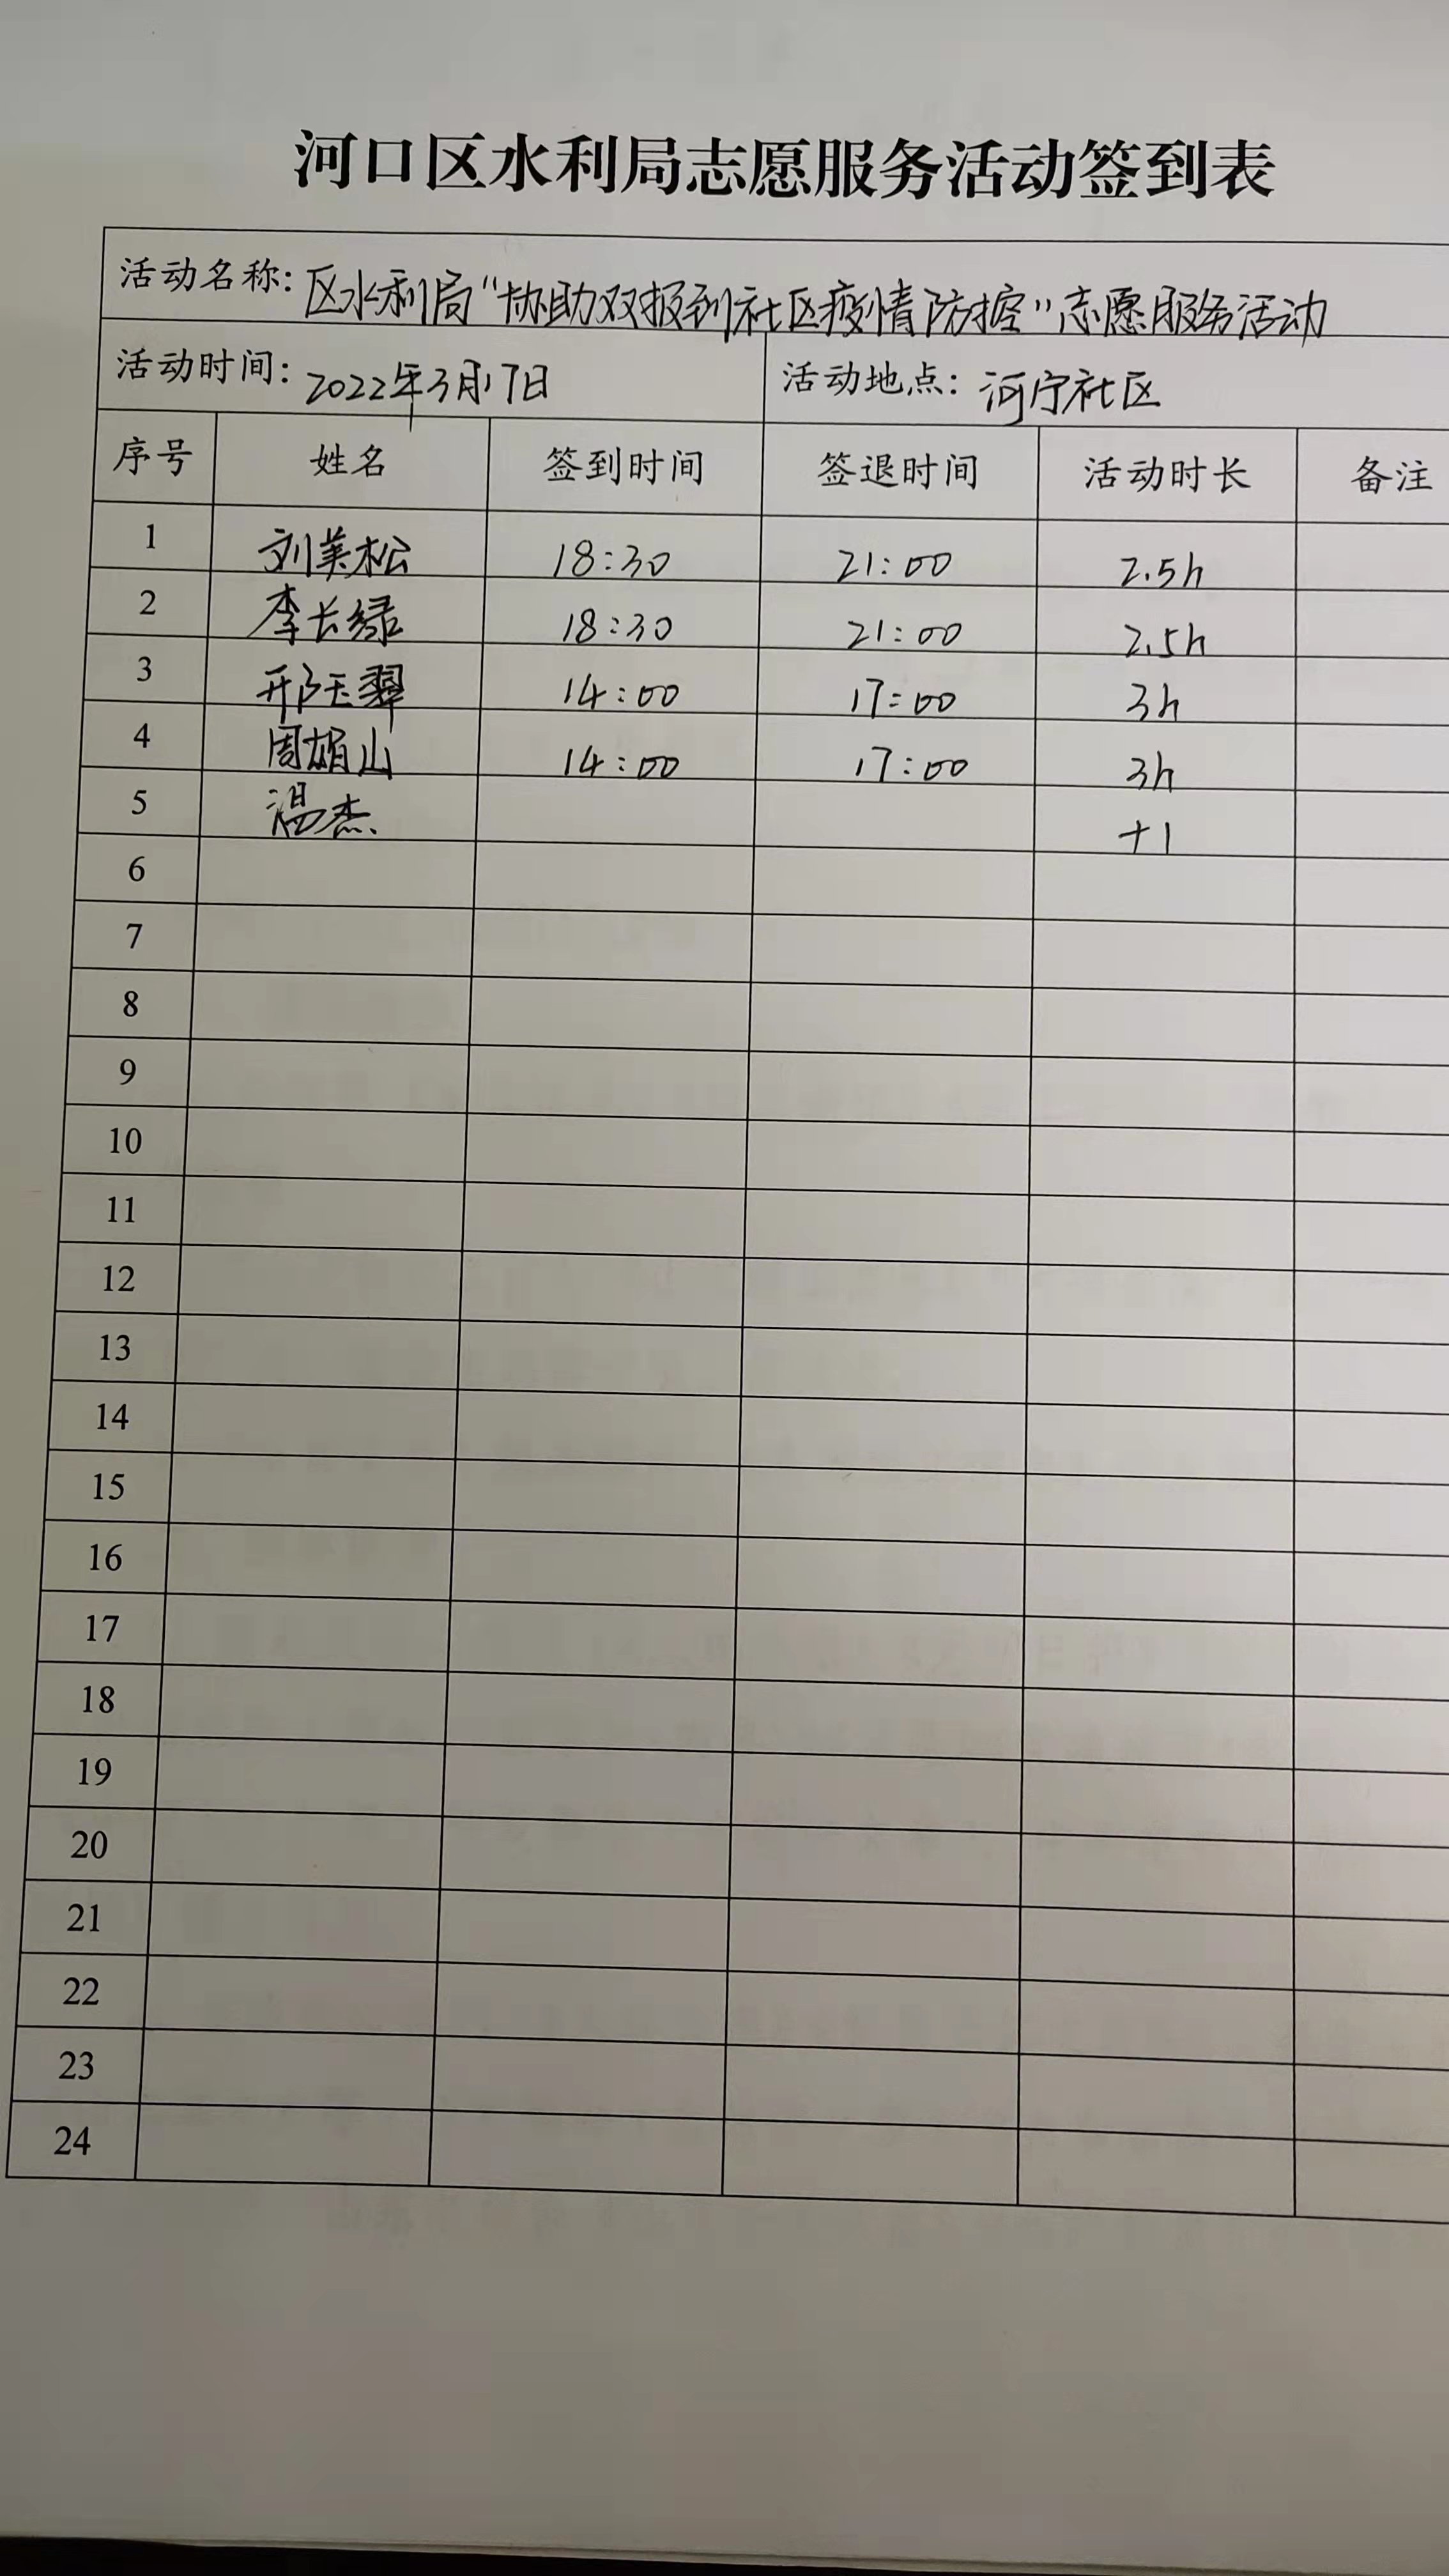 河口区水利局志愿服务活动签到表
活动名称: 区水利局“协助双报到社区疫情防控”志愿服务活动
活动时间: 2022年3月17日 活动地点: 河宁社区
序号 姓名 签到时间 签退时间 活动时长 备注
1 刘美松 18:30 21:00 2.5h
2 李长绿 18:30 21:00 2.5h
3 邢玉翠 14:00 17:00 3h
4 周娟山 14:00 17:00 3h
5 温杰 +1
6
7
8
9
10
11
12
13
14
15
16
17
18
19
20
21
22
23
24